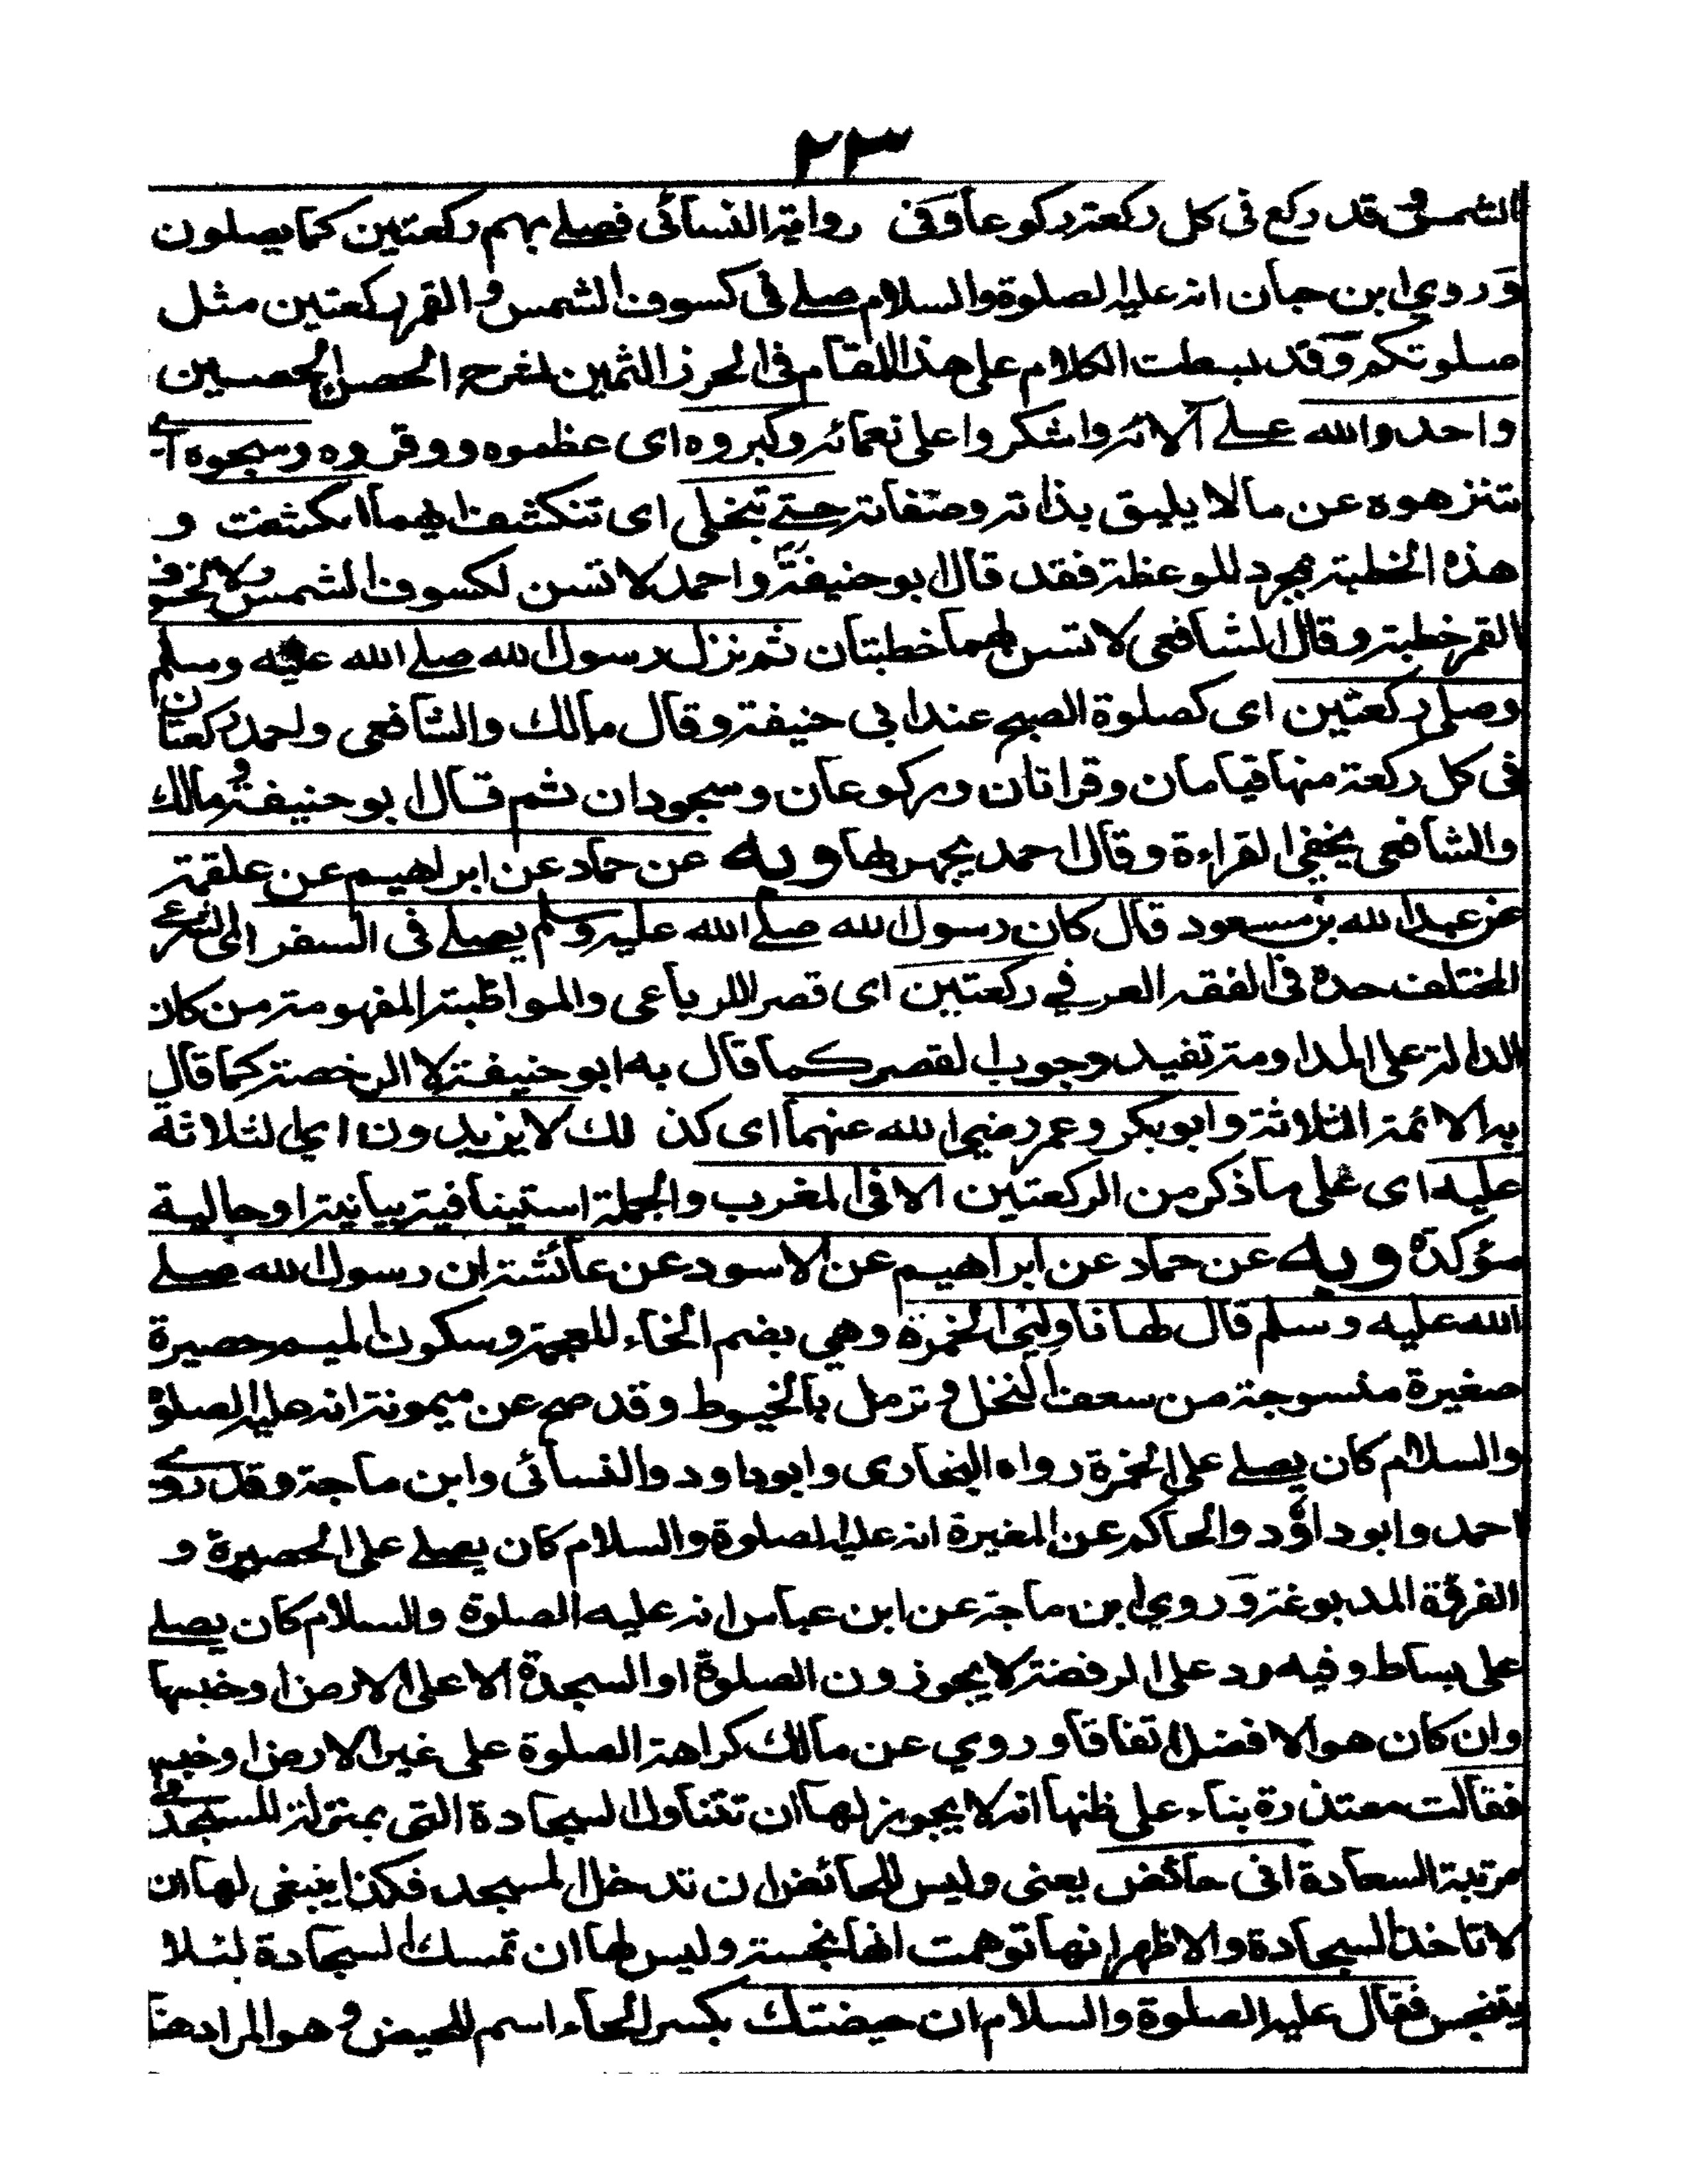 ٢٣
الشمس قد ركع فى كل ركعة ركوعا وفى رواية النسائى فصلے بهم ركعتين كما يصلون
وروي ابن حبان انه عليه الصلوة والسلام صلے فى كسوف الشمس والقمر ركعتين مثل
صلوتكم وقد بسطت الكلام على هذا المقام فى الحرز الثمين لشرح الحصن الحصين
واحمدوا الله علے آلائه واشكروا على نعمائه وكبروه اى عظموه ووقروه وسبحوه اے
تنزهوه عن ما لا يليق بذاته وصفاته حتے تنجلى اى تنكشف ايهما انكشفت و
هذه الخطبة بمجرد الموعظة فقد قال ابو حنيفة واحمد لا تسن لكسوف الشمس ولا لخسوف
القمر خطبة وقال الشافعى لا تسن لهما خطبتان ثم نزل رسول الله صلے الله عليه وسلم
وصلى ركعتين اى كصلوة الصبح عند ابى حنيفة وقال مالك والشافعى واحمد ركعتان
فى كل ركعة منها قيامان وقراتان وركوعان وسجودان ثم قال ابو حنيفة ومالك
والشافعى يخفي القراءة وقال احمد يجهر بها وبه عن حماد عن ابراهيم عن علقمة
عن عبد الله بن مسعود قال كان رسول الله صلے الله عليه وسلم يصلے فى السفر اى الشرعى
المختلف حده فى الفقه العرفي ركعتين اى قصر اللرباعى والمواظبة المفهومة من كان
الدالة على المداومة تفيد وجوب القصر كما قال به ابو حنيفة لا الرخصة كما قال
به الائمة الثلاثة وابو بكر وعمر رضي الله عنهما اى كذلك لا يزيدون اي الثلاثة
عليه اى على ما ذكر من الركعتين الا فى المغرب والجملة استينافية بيانية او حالية
مؤكدة وبه عن حماد عن ابراهيم عن الاسود عن عائشة ان رسول الله صلے
الله عليه وسلم قال لها ناوليني الخمرة وهي بضم الخاء المعجمة وسكون الميم حصيرة
صغيرة منسوجة من سعف النخل وترمل بالخيوط وقد صح عن ميمونة انه عليه الصلوة
والسلام كان يصلے على الخمرة رواه البخارى وابو داود والنسائى وابن ماجة وقد روے
احمد وابو داؤد والحاكم عن المغيرة انه عليه الصلوة والسلام كان يصلے على الحصيرة و
الفرقة المدبوغة وروي ابن ماجة عن ابن عباس انه عليه الصلوة والسلام كان يصلے
على بساط وفيه رد على الرفضة لا يجوزون الصلوة او السجدة الا على الارض او خبسها
وان كان هو الافضل اتفاقا وروي عن مالك كراهة الصلوة على غير الارض او خبس
فقالت معتذرة بناء على ظنها انه لا يجوز لها ان تتناول السجادة التى بمنزلة المسجد فى
مرتبة السعادة انى حائض يعنى وليس للحائض ان تدخل المسجد فكذا ينبغى لها ان
لا تاخذ السجادة والاظهر انها توهمت انها نجسة وليس لها ان تمسك السجادة لئلا
يتنجس فقال عليه الصلوة والسلام ان حيضتك بكسر الحاء اسم للحيض وهو المراد هنا